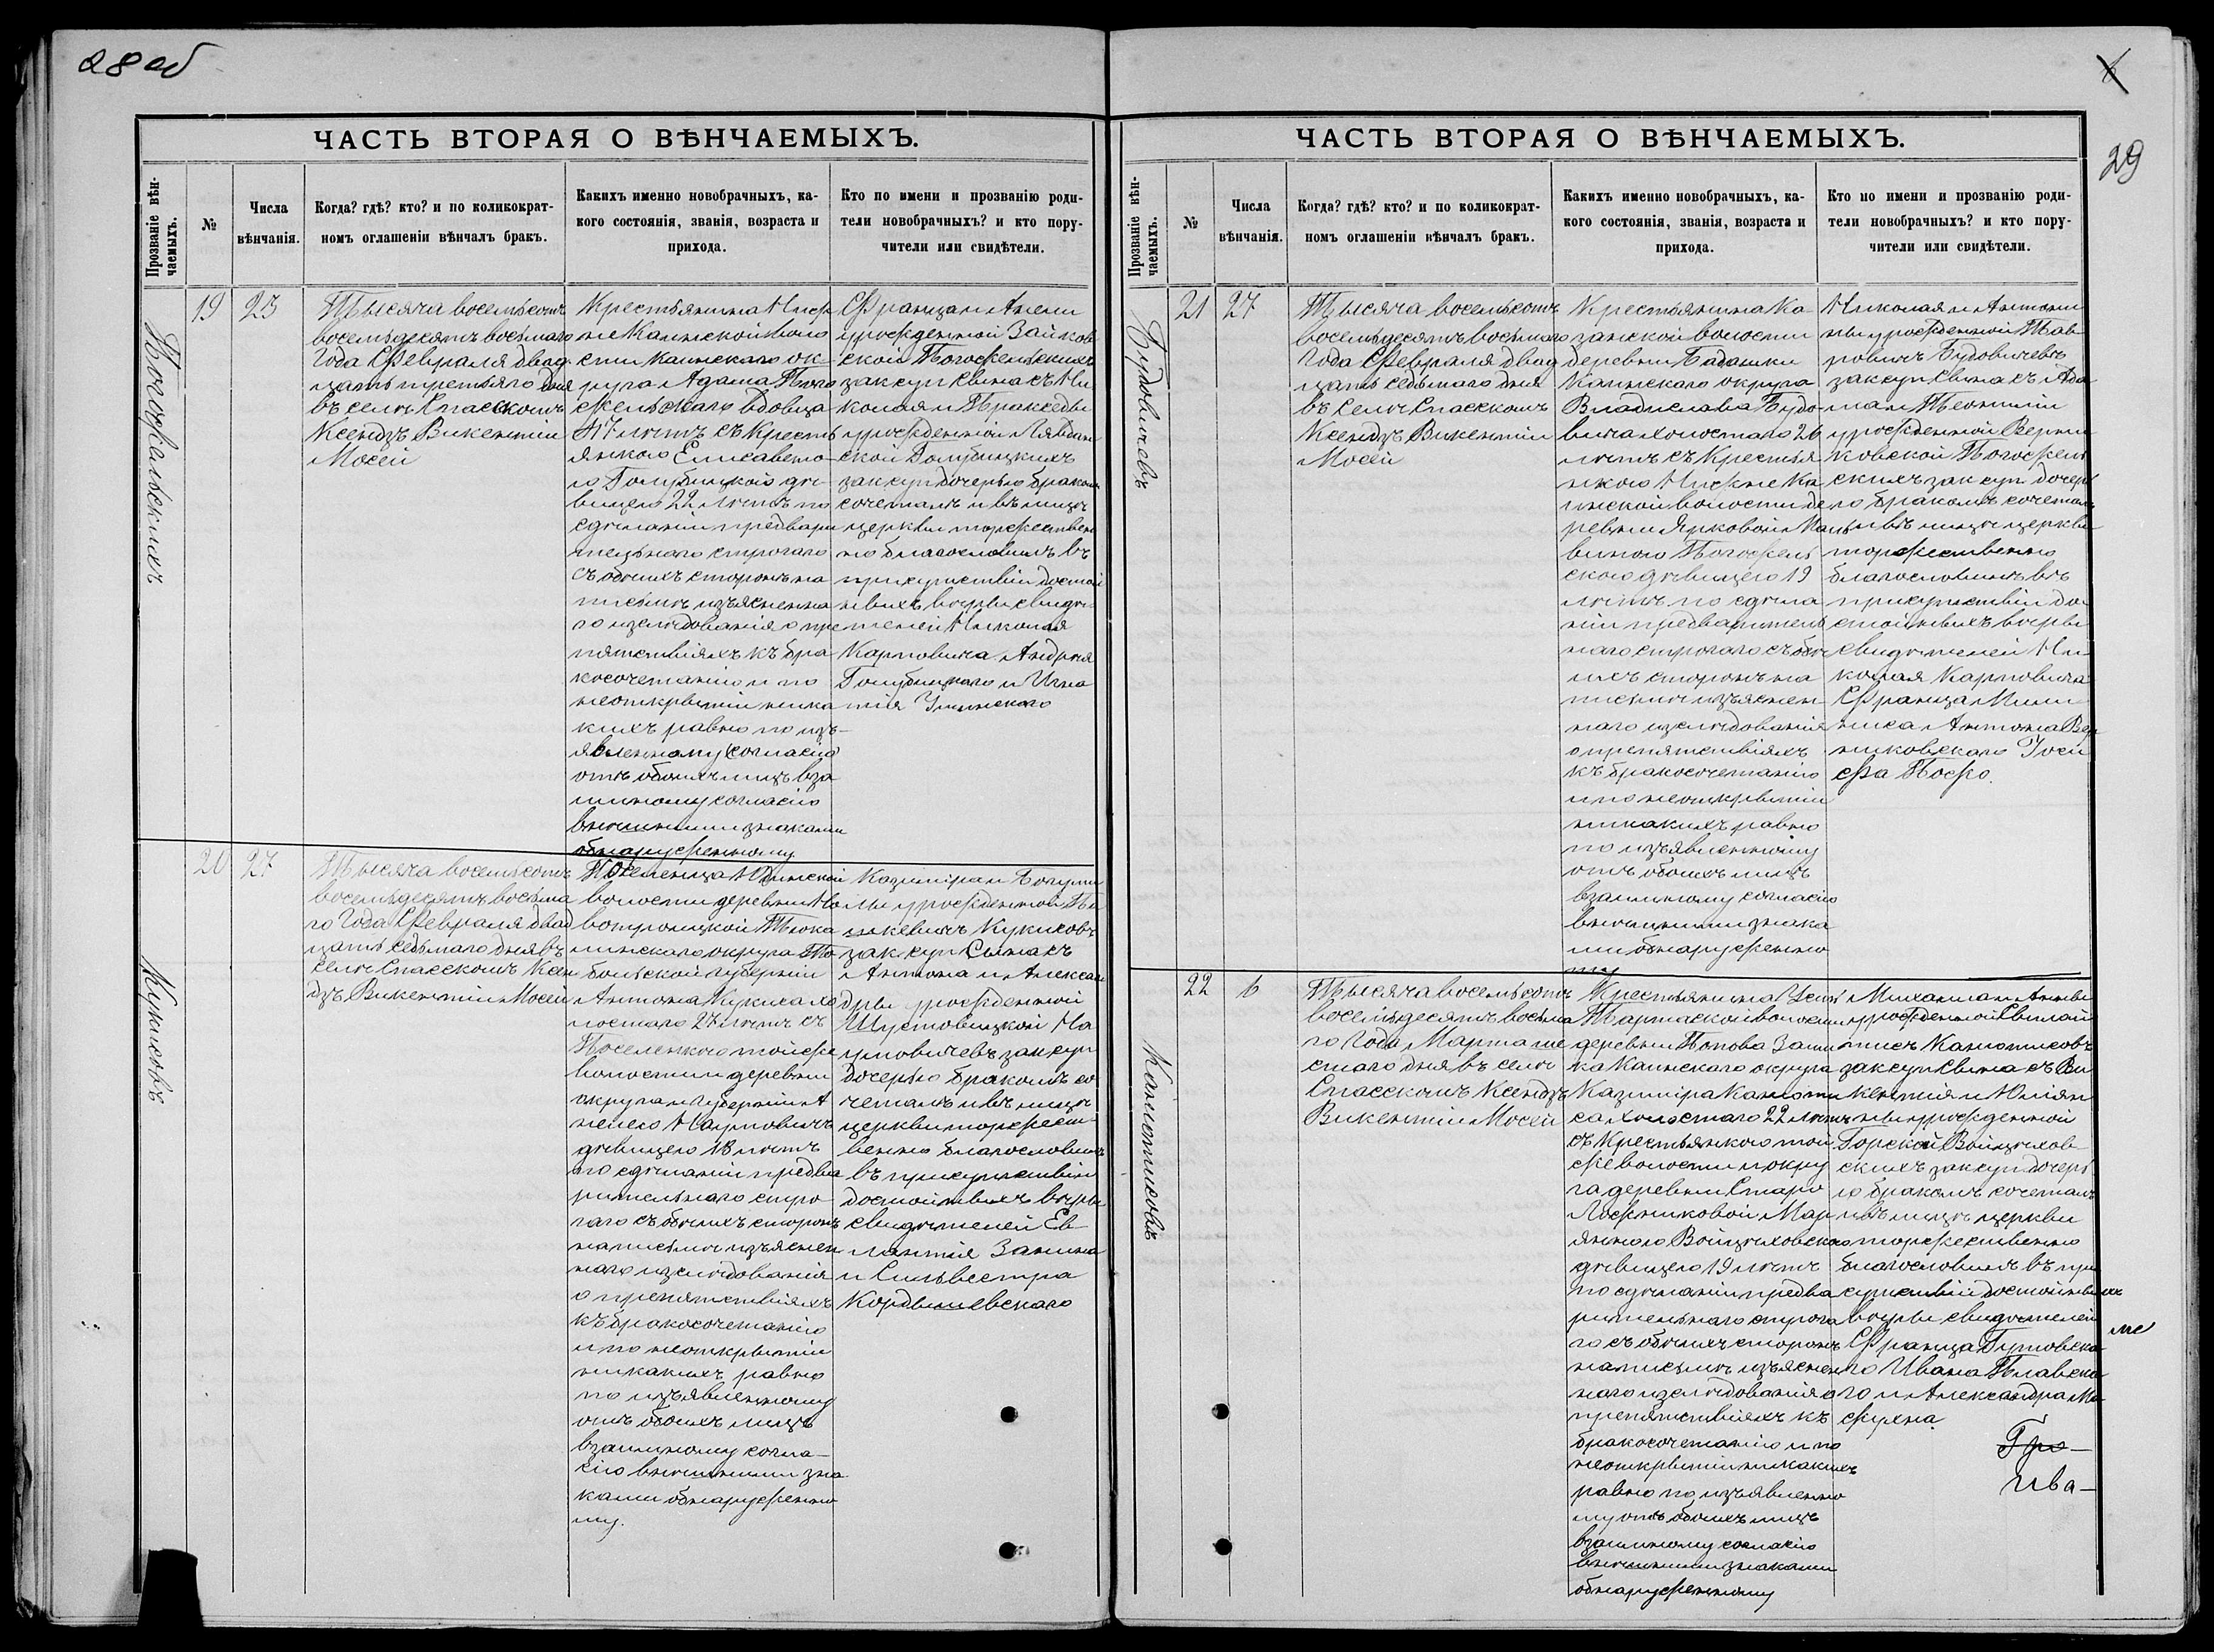 28 об
ЧАСТЬ ВТОРАЯ О ВѢНЧАЕМЫХЪ.
Прозваніе вѣн-
чаемыхъ.
№
Числа
вѣнчанія.
Когда? гдѣ? кто? и по коликократ-
номъ оглашеніи вѣнчалъ бракъ.
Какихъ именно новобрачныхъ, ка-
кого состоянія, званія, возраста и
прихода.
Кто по имени и прозванію роди-
тели новобрачныхъ? и кто пору-
чители или свидѣтели.
Погожельскихъ
19
23
Тысяча восемьсотъ
восемьдесятъ восьмаго
Года Февраля двад
цать третьяго дня
въ селѣ Спасскомъ
Ксендзъ Викентій
Мосей
Крестьянина Ниж
не Каинской воло
сти Каинскаго ок-
руга Адама Пого
жельскаго вдовца
47 лѣтъ съ Кресть
янкою Елисавето-
ю Голубицкою дѣ-
вицею 22 лѣтъ по
сдѣланіи предвари
тельнаго строгаго
съ обоихъ сторонъ на
письмѣ изъясненна
го изслѣдованія о пре
пятствіяхъ къ бра
косочетанію и по
неоткрытіи ника
кихъ равно по изъ-
явленному согласію
отъ обоихъ лицъ вза
имному согласію
внѣшними знаками
обнаруженному.
Франца и Анели
урожденной Зайков
ской Погожельскихъ
зак. суп. Сына съ Ни
колая и Пракседы
урожденной Лявдан
ской Голубицкихъ
зак. суп. дочерью бракомъ
сочеталъ и въ лицѣ
церкви торжествен
но благословилъ въ
присутствіи достой
ныхъ вѣры свидѣ-
телей Николая
Карповича Андрея
Голубицкаго и Игна
тія
Кукисовъ
20
27
Тысяча восемьсотъ
восемьдесятъ восьма
го Года Февраля двад
цать седьмаго дня въ
селѣ Спасскомъ Ксен
дзъ Викентій Мосей
Поселенца
волости деревни Но
вотроицкой Тюка
линскаго округа То
больской губерніи
Антона Кукиса хо
лостаго 27 лѣтъ съ
Поселенкою той же
волости и деревни
округа и губерніи А
нелею Наумовичъ
дѣвицею 18 лѣтъ
по сдѣланіи предва
рительнаго стро
гаго съ обоихъ сторонъ
на письмѣ изъяснен
наго изслѣдованія
о препятствіяхъ
къ бракосочетанію
и по неоткрытіи
никакихъ равно
по изъявленному
отъ обоихъ лицъ
взаимному согла-
сію внѣшними зна
ками обнаруженно
му.
Казиміра и Богуми
лы урожденной
Кукисовъ
зак. суп. Сына съ
Антона и Алексан
дры урожденной
Шустовицкой На
умовичевъ зак. суп
дочерью бракомъ со
четалъ и въ лицѣ
церкви торжест-
венно благословилъ
въ присутствіи
достойныхъ вѣры
свидѣтелей Ев
лантія Занина
и Сильвестра
Кордзишевскаго
29
ЧАСТЬ ВТОРАЯ О ВѢНЧАЕМЫХЪ.
Прозваніе вѣн-
чаемыхъ.
№
Числа
вѣнчанія.
Когда? гдѣ? кто? и по коликократ-
номъ оглашеніи вѣнчалъ бракъ.
Какихъ именно новобрачныхъ, ка-
кого состоянія, званія, возраста и
прихода.
Кто по имени и прозванію роди-
тели новобрачныхъ? и кто пору-
чители или свидѣтели.
Будовичевъ
21
27
Тысяча восемьсотъ
восемьдесятъ восьмаго
Года Февраля двад
цать седьмаго дня
въ Селѣ Спасскомъ
Ксендзъ Викентій
Мосей
Крестьянина Ка
занской волости
деревни Бадашки
Каинскаго округа
Владислава Будо
вича холостаго 26
лѣтъ съ Крестья
нкою Нижне Ка
инской волости де
ревни Ярковой Маль
виною Погожель
скою дѣвицею 19
лѣтъ по сдѣла
ніи предваритель
наго строгаго съ обо
ихъ сторонъ на
письмѣ изъяснен
наго изслѣдованія
о препятствіяхъ
къ бракосочетанію
и по неоткрытіи
никакихъ равно
по изъявленному
отъ обоихъ лицъ
взаимному согласію
внѣшними знака
ми обнаруженно
му
Николая и Антони
ны урожденной
Будовичевъ
зак. суп. Сына съ Ада
ма и Теофиліи
урожденной Верни
ковской Погожель
скихъ зак. суп. дочерь
ю бракомъ сочеталъ
и въ лицѣ церкви
торжественно
благословилъ въ
присутствіи до
стойныхъ вѣры
Свидѣтелей Ни
колая Карповича
Франца
Антона Вер
никовскаго Іоси
фа
Канотисовъ
22
6
Тысяча восемьсотъ
восемьдесятъ восьма
го Года Марта ше
стаго дня въ селѣ
Спасскомъ Ксендзъ
Викентій Мосей
Крестьянина Усть
Тартаской волости
деревни Попова Заим
ка Каинскаго округа
Казиміра Каноти
са холостаго 22 лѣтъ
съ Крестьянкою той
же волости и окру
га деревни Старо
Ложниковой Мар
янною Войцѣховскою
дѣвицею 19 лѣтъ
по сдѣланіи предва
рительнаго строга
го съ обоихъ сторонъ
на письмѣ изъяснен
наго изслѣдованія о
препятствіяхъ къ
бракосочетанію и по
неоткрытіи никакихъ
равно по изъявленно
му отъ обоихъ лицъ
взаимному согласію
внѣшними знаками
обнаруженному
Михаила и Анны
урожденной
Канотисовъ
зак. суп. Сына съ Ви
кентія и Юліян
ны урожденной
Горской Войцѣхов
скихъ зак. суп. дочерь
ю бракомъ сочеталъ
и въ лицѣ церкви
торжественно
благословилъ въ при
сутствіи достойныхъ
вѣры свидѣтелей
Франца Гутовска
го Ивана
го и Александра